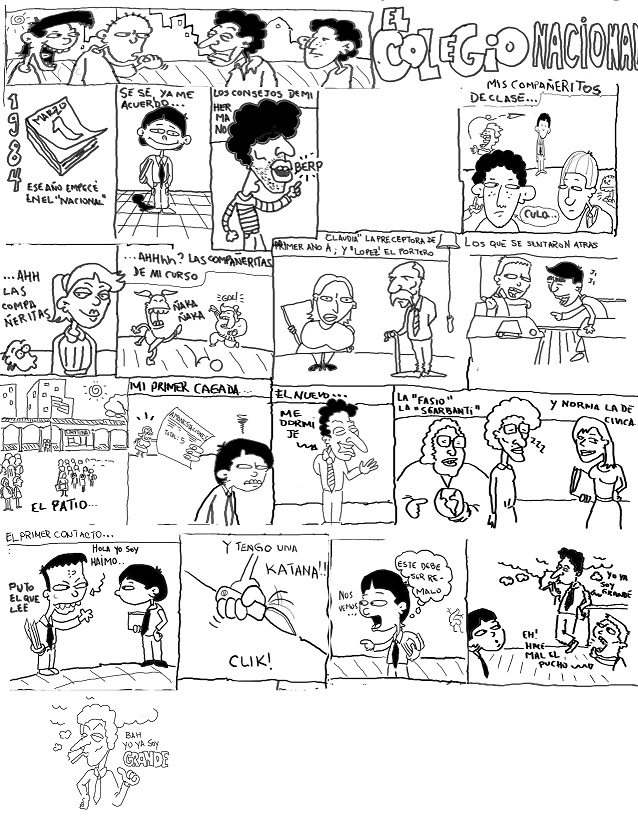 EL
COLEGIO NACIONAL
1984
MARZO
1
ESE AÑO EMPECÉ
EN EL "NACIONAL"
SE SE, YA ME
ACUERDO...
LOS CONSEJOS DE MI
HER
MA
NO
BERP
MIS COMPAÑERITOS
DE CLASE...
CULO...
...AHH
LAS
COMPA
ÑERITAS
...AHHHH? LAS COMPAÑERITAS
DE MI CURSO
ÑAKA
ÑAKA
¡GOL!
CLAUDIA" LA PRECEPTORA DE
PRIMER AÑO A; Y "LOPEZ" EL PORTERO
LOS QUE SE SENTARON ATRAS
JI
JI
EL PATIO...
MI PRIMER CAGADA...
AMONESTACIONES
TOTAL: 5
EL NUEVO...
ME
DORMI
JE
LA "FASIO"
LA "SGARBANTI"
ZZZ
Y NORMA LA DE
CIVICA
EL PRIMER CONTACTO...
PUTO
EL QUE
LEE
HOLA YO SOY
HAIMO..
Y TENGO UNA
KATANA!!
CLIK!
NOS
VEMOS
...
ESTE DEBE
SER RE-
MALO
YO YA
SOY
GRANDE
EH!
HACE
MAL EL
PUCHO
BAH
YO YA SOY
GRANDE